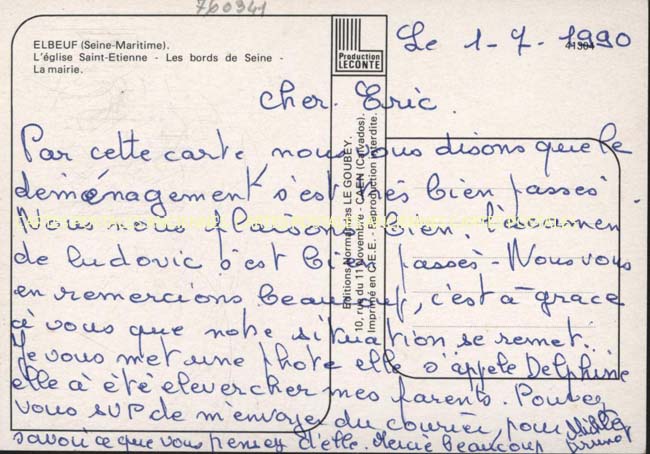 760341
ELBEUF (Seine-Maritime).
L'église Saint-Etienne - Les bords de Seine -
La mairie.
Production
LECONTE
41304
Editions Normandes LE GOUBEY.
10, rue du 11 Novembre - CAEN (Calvados).
Imprimé en C.E.E. - Reproduction interdite.
Le 1-7-1990
Cher. Eric.
Par cette carte, nous vous disons que le
deménagement s'est très bien passés
Nous nous plaisons bien. l'éxamen
de ludovic s'est bien passès - Nous vous
en remercions beaucoup, c'est à grace
à vous que notre situation se remet.
Je vous met une phote elle s'appele Delphine
elle à été elever cher mes parents. Pouvez
vous SVP de m'envoyer du courier, pour
savoir ce que vous pensez d'elle. Mercie beaucoup